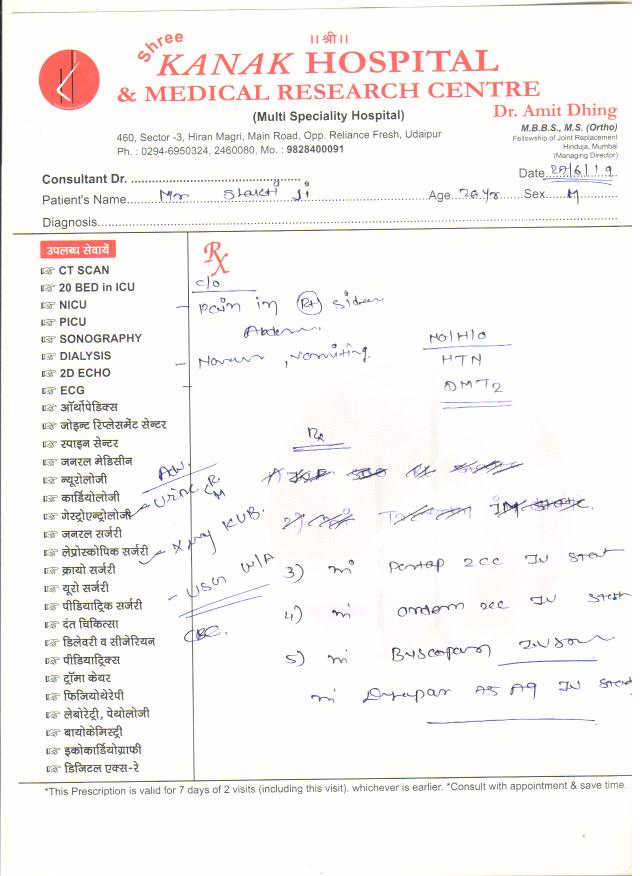 ॥ श्री ॥
Shree
KANAK HOSPITAL
& MEDICAL RESEARCH CENTRE
(Multi Speciality Hospital)
460, Sector -3, Hiran Magri, Main Road, Opp. Reliance Fresh, Udaipur
Ph. : 0294-6950324, 2460080, Mo. : 9828400091
Dr. Amit Dhing
M.B.B.S., M.S. (Ortho)
Fellowship of Joint Replacement
Hinduja, Mumbai
(Managing Director)
Date 29/6/19
Consultant Dr.
Patient's Name Mr Shakti Ji Age 26 Yr Sex M
Diagnosis
उपलब्ध सेवायें
CT SCAN
20 BED in ICU
NICU
PICU
SONOGRAPHY
DIALYSIS
2D ECHO
ECG
ऑर्थोपेडिक्स
जोइन्ट रिप्लेसमेंट सेन्टर
स्पाइन सेन्टर
जनरल मेडिसीन
न्यूरोलोजी
कार्डियोलोजी
गेस्ट्रोएन्ट्रोलोजी
जनरल सर्जरी
लेप्रोस्कोपिक सर्जरी
क्रायो सर्जरी
यूरो सर्जरी
पीडियाट्रिक सर्जरी
दंत चिकित्सा
डिलेवरी व सीजेरियन
पीडियाट्रिक्स
ट्रॉमा केयर
फिजियोथेरेपी
लेबोरेट्री, पेथोलोजी
बायोकेमिस्ट्री
इकोकार्डियोग्राफी
डिजिटल एक्स-रे
Rx
C/O
- Pain in Rt side
- , Vomiting
NO/H/O
HTN
DMT2
Rx
Adv.
- Urine R/M
- Xray KUB.
- USG W/A
CBC.
3) Pantap 2cc IV stat
4) Ondem 2cc IV stat
5) Buscopan
IV stat
*This Prescription is valid for 7 days of 2 visits (including this visit). whichever is earlier. *Consult with appointment & save time.